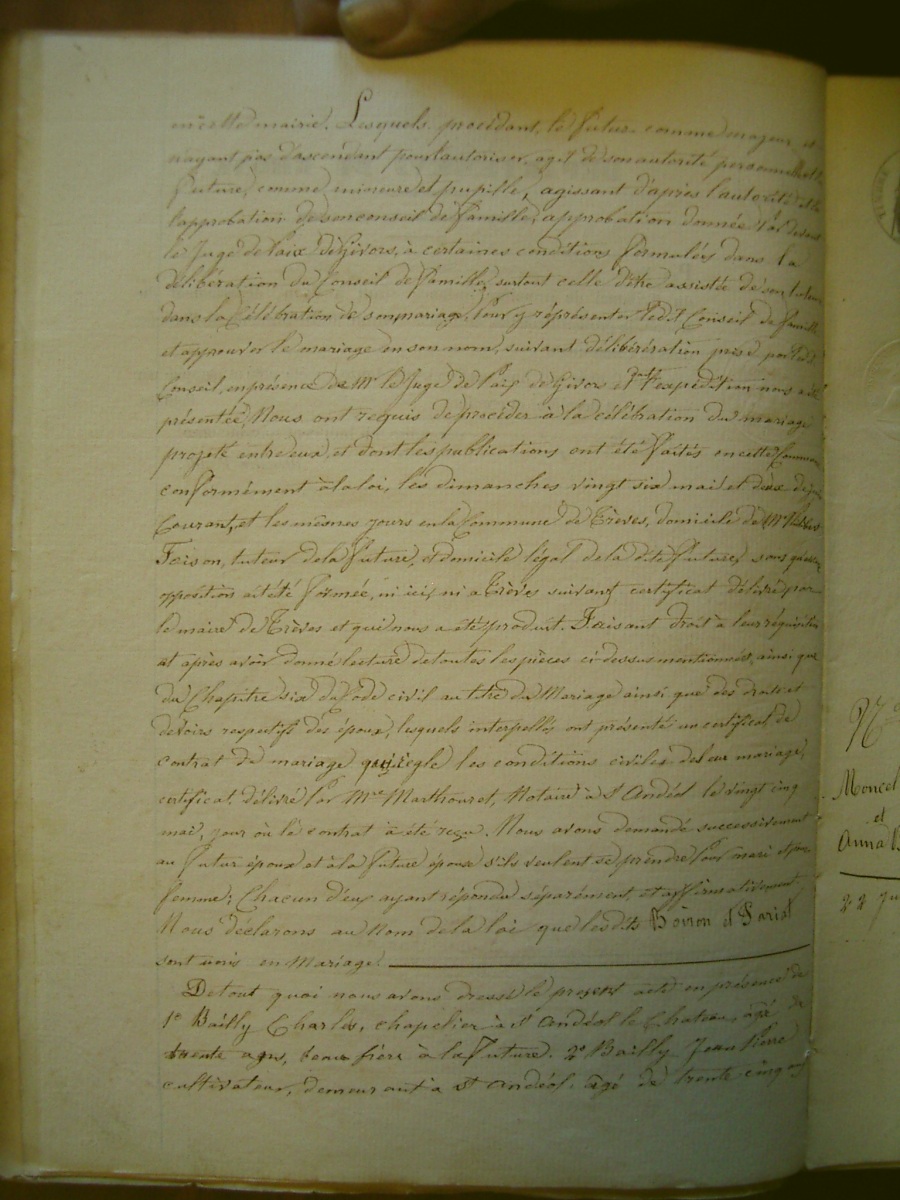 en cette mairie. Lesquels procédant, le futur comme majeur et
n'ayant pas d'ascendant pour l'autoriser, agit de son autorité personnelle et la
future, comme mineure et pupille, agissant d'après l'autorité et
l'approbation de son conseil de famille, approbation donnée par devant
le Juge de Paix de Givors, à certaines conditions formulées dans la
délibération du Conseil de famille, surtout celle d'être assistée de son tuteur
dans la célébration de son mariage, pour y réprésenter ledit Conseil de famille
et approuver le mariage en son nom, suivant délibération prise par ledit
Conseil, en présence de Mr le Juge de Paix de Givors et dont l'expédition nous a été
présentée, Nous ont requis de procéder à la célébration du mariage
projeté entre eux, et dont les publications ont été faites en cette Commune
conformément à la loi, les dimanches vingt six mai et deux de juin
Courant, et les mêmes jours en la Commune de Trèves, domicile de Mr
tuteur de la future, et domicile légal de la dite future, sans qu'aucune
opposition ait été formée, ni ici, ni à Trèves suivant certificat délivré par
le maire de Trèves et qui nous a été produit. Faisant droit à leur réquisition
et après avoir donné lecture de toutes les pièces ci-dessus mentionnées, ainsi que
du Chapitre six du Code civil au titre du Mariage ainsi que des droits et
devoirs respectifs des époux, lesquels interpellés ont présenté un certificat de
contrat de mariage qui règle les conditions civiles de leur mariage,
certificat délivré par Me Marthouret, Notaire à St Andéol le vingt cinq
mai, jour où le contrat a été reçu. Nous avons demandé successivement
au futur époux et à la future épouse s'ils veulent se prendre pour mari et pour
femme; Chacun d'eux ayant répondu séparément et affirmativement,
Nous déclarons au nom de la loi que les dits Boiron et Pariat
sont unis en Mariage.
De tout quoi nous avons dressé le présent acte en présence de
1° Bailly Charles, chapelier à St Andéol le Chateau, âgé de
trente ans, beau frère à la future. 2° Bailly Jean Pierre
cultivateur, demeurant à St Andéol, âgé de trente cinq ans
N°
et
Anna
22